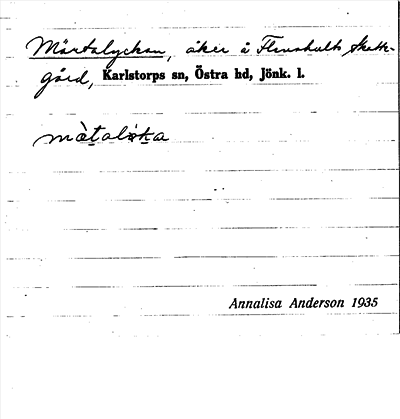 Märtalyckan, åker å Flenshults Skatte-
gård, Karlstorps sn, Östra hd, Jönk. l.
mὰtalı̀ka
Annalisa Anderson 1935